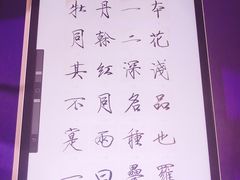 牡丹一本
同幹二花
其紅深淺
不同名品
寔兩種也
一曰疊羅